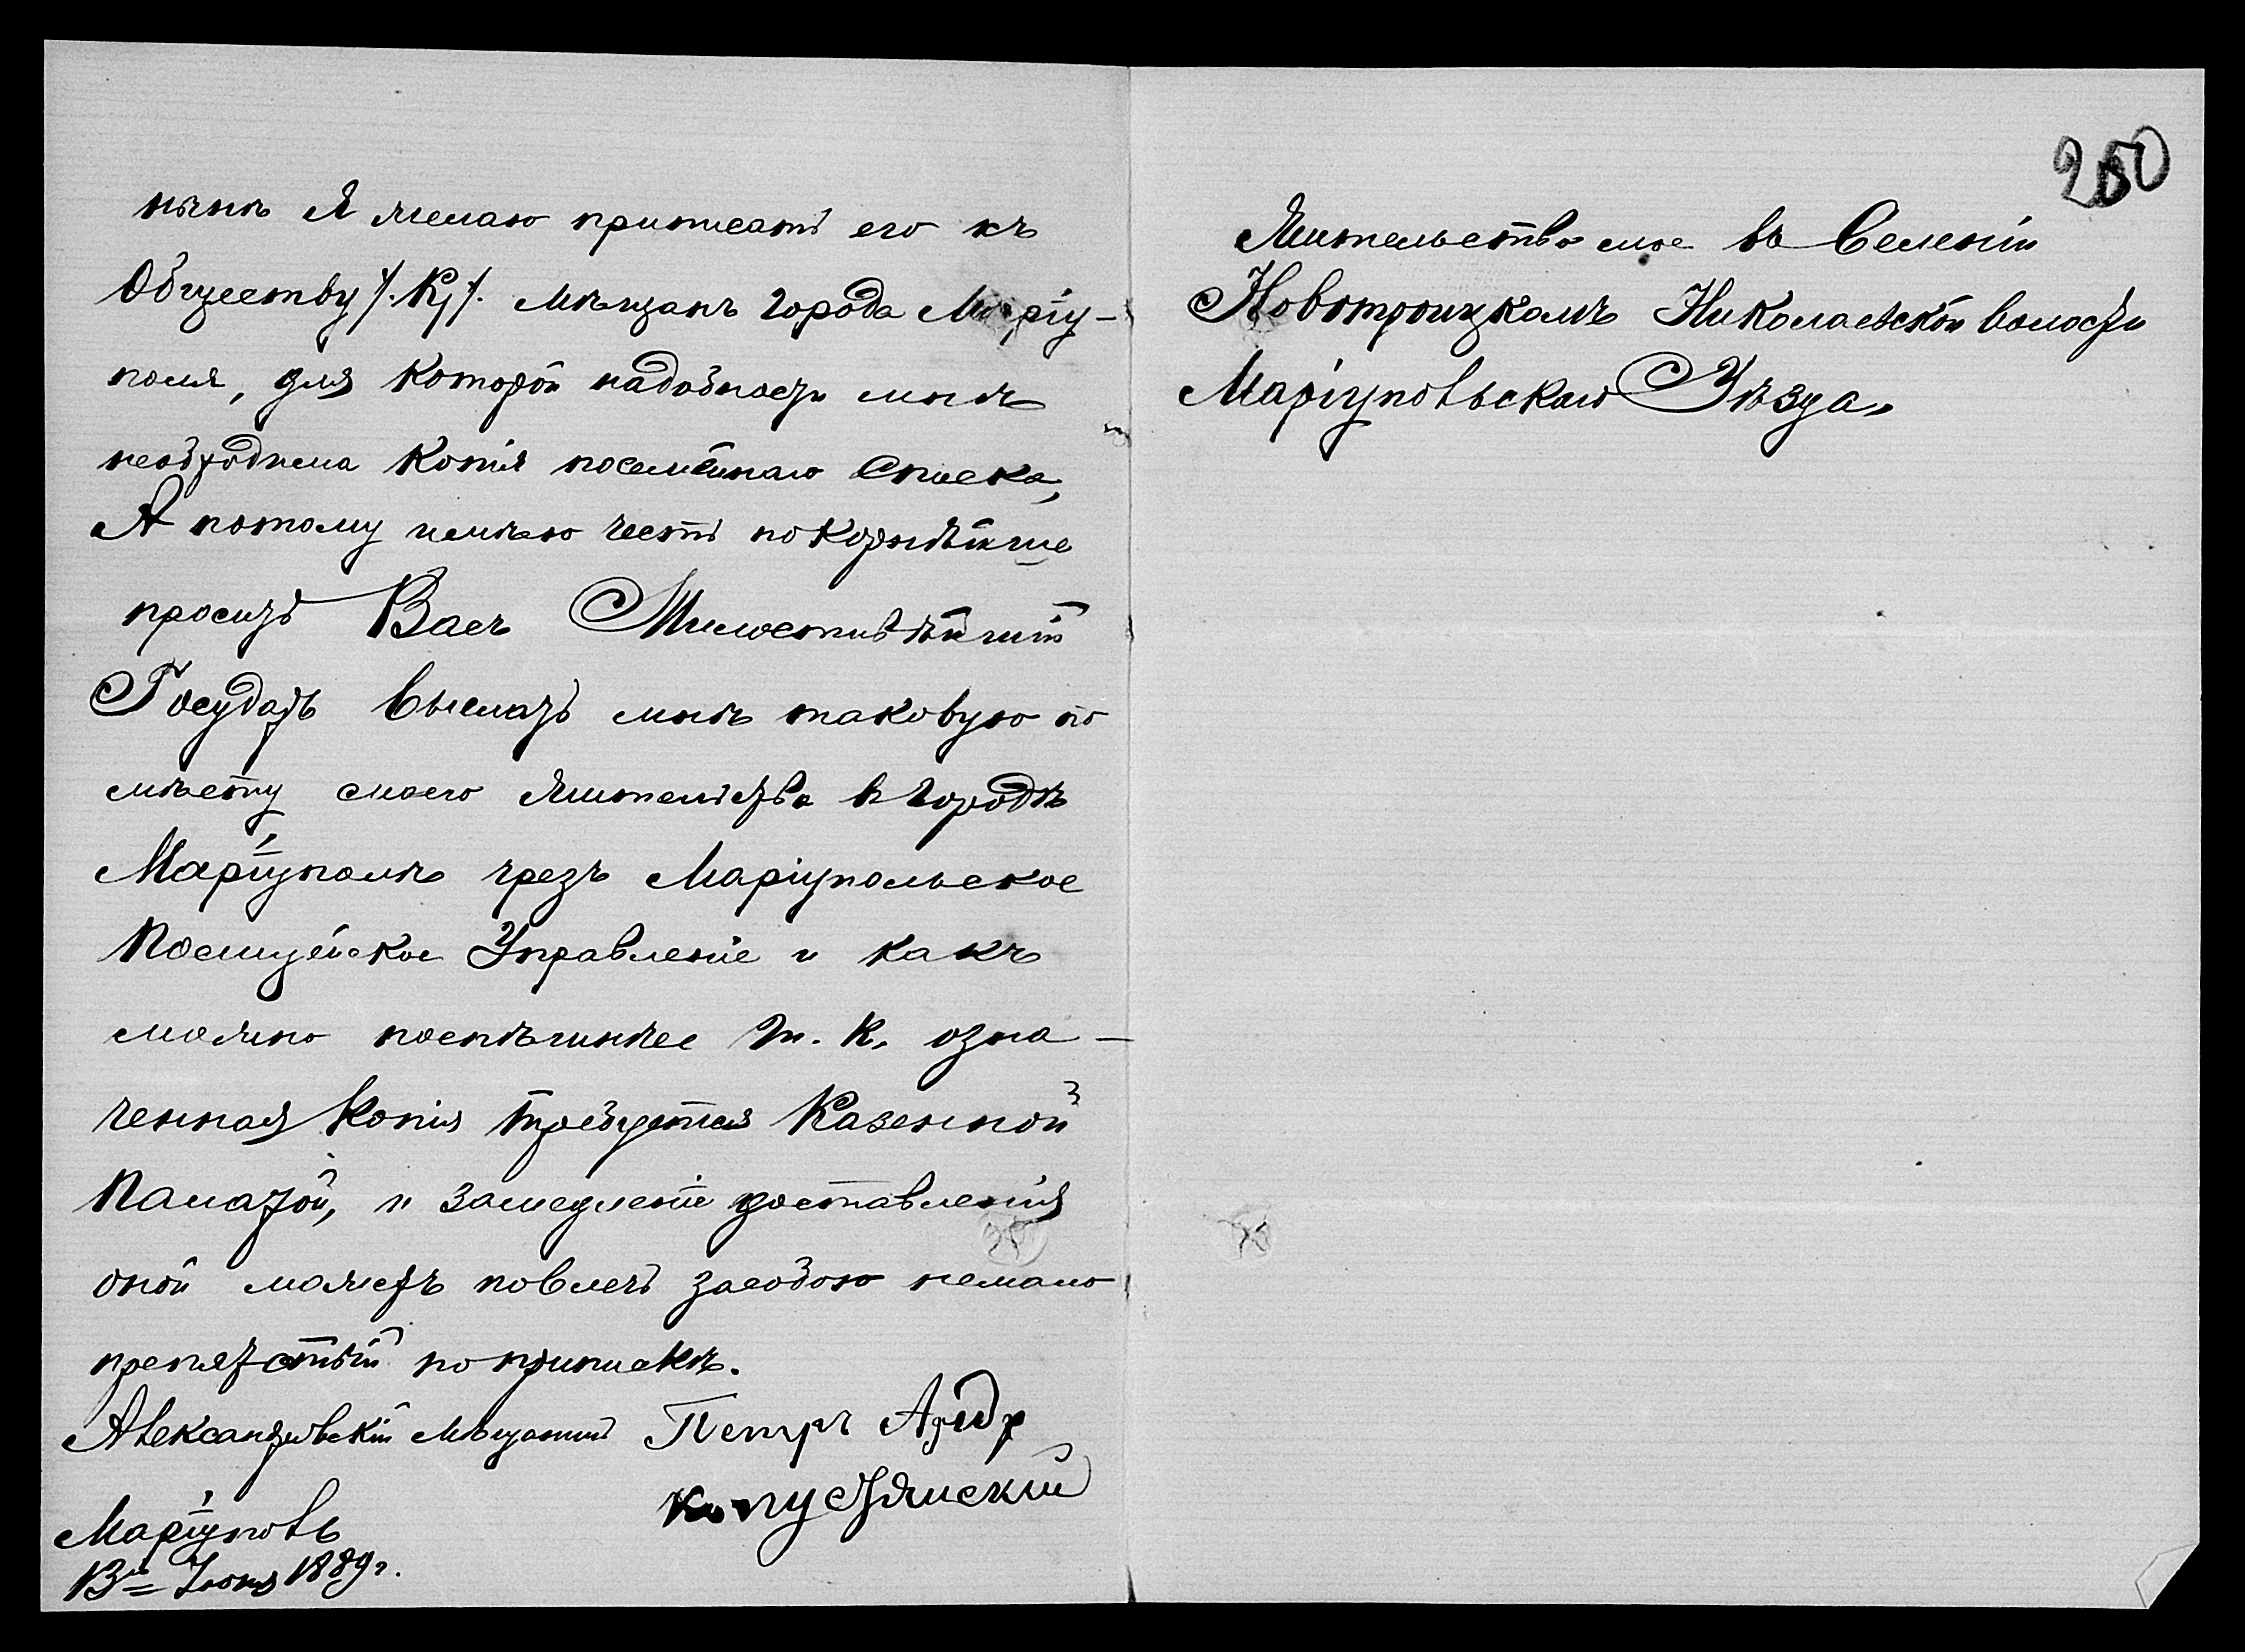 нынѣ Я желаю приписать его къ
Обществу /:К:/ мѣщанъ города Маріу-
поля, для которой надобности мнѣ
необходима копія посемейнаго списка,
А потому имѣю честь покорнѣйше
просить Васъ Милостивѣйшій
Государь выслать мнѣ таковую по
мѣсту моего жительства въ городѣ
Маріуполѣ чрезъ Маріупольское
Полицейское Управленіе и какъ
можно поспѣшнѣе т. к. озна-
ченная копія требуется Казенной
Палатой, и замедленіе доставленія
оной можетъ повлечь засобою немало
препятствій по припискѣ.
Александровскій Мѣщанинъ Петръ
Капустянскій
Маріуполь
13го Іюня 1889г.
250
Жительство мое въ Селеніи
Новотроицкомъ Николаевской волости
Маріупольскаго Уѣзда.